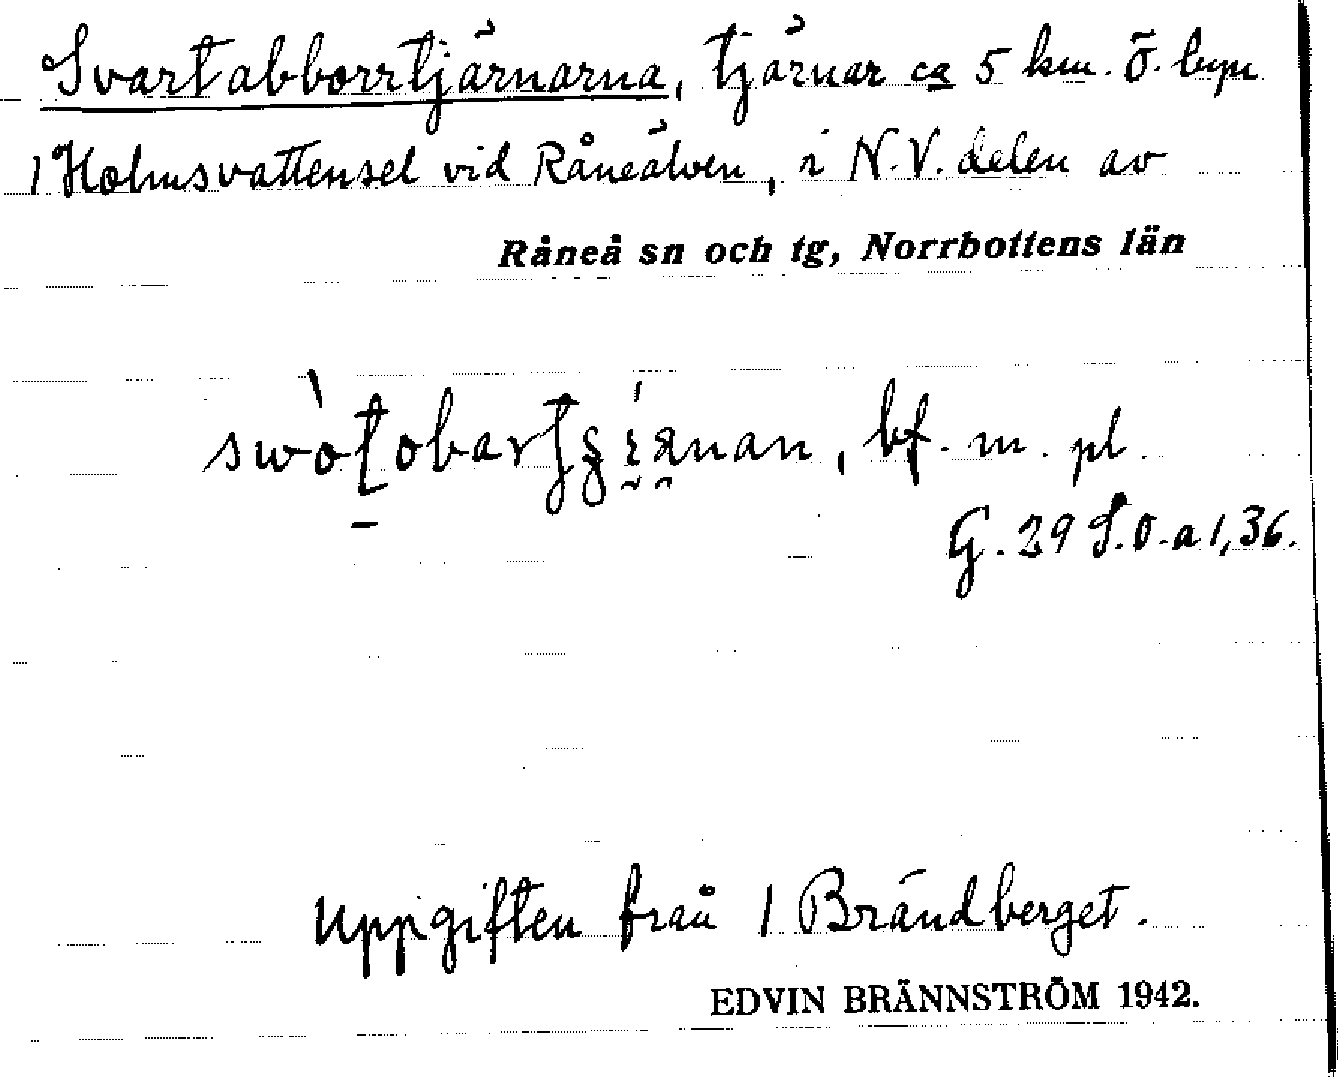 Svartabborrtjärnarna, tjärnar ca 5 km. ö. byn
1 Holmsvattensel vid Råneälven, i N.V. delen av
Råneå sn och tg, Norrbottens län
bf. m. pl.
G. 29 S.O. a 1,36.
Uppgiften från 1 Brändberget.
EDVIN BRÄNNSTRÖM 1942.